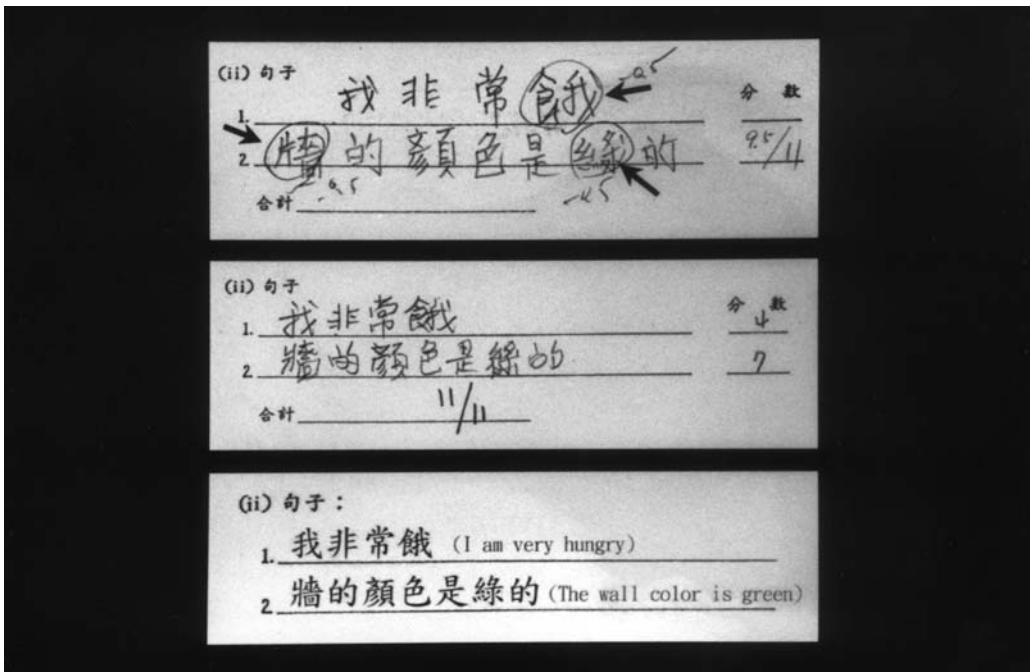 (ii) 句子
1. 我非常餓 -0.5
分 數
2. 牆的顏色是綠的 9.5/11
-0.5 -0.5
合計
(ii) 句子
分 數
1. 我非常餓 4
2. 牆的顏色是綠的 7
合計 11/11
(ii) 句子：
1. 我非常餓 (I am very hungry)
2. 牆的顏色是綠的 (The wall color is green)